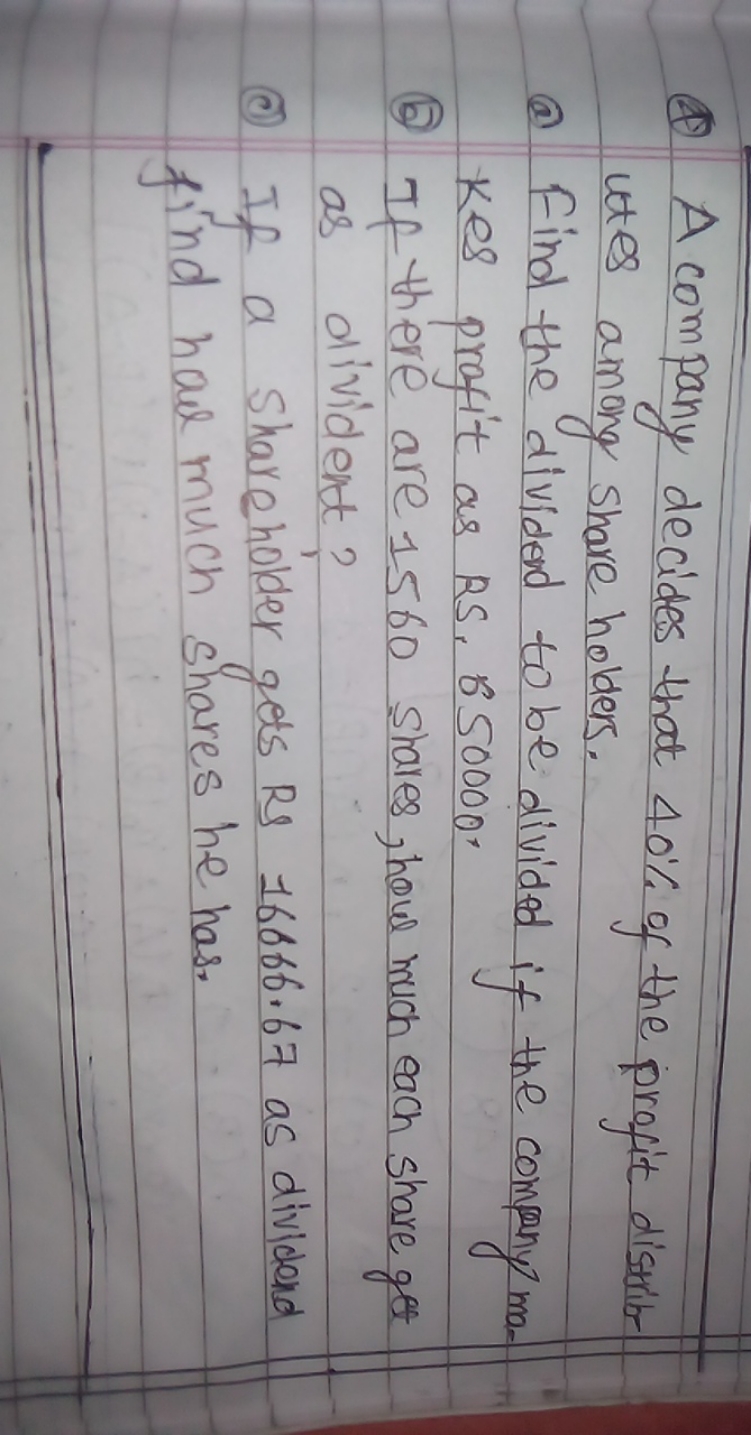 ④ A company decides that 40% of the profit distrib-
utes among share holders.
ⓐ find the dividend to be divided if the company ma-
kes profit as RS. 650000.
ⓑ If there are 1560 shares, how much each share get
as divident?
ⓒ If a shareholder gets RS 16666.67 as dividend
find how much shares he has.